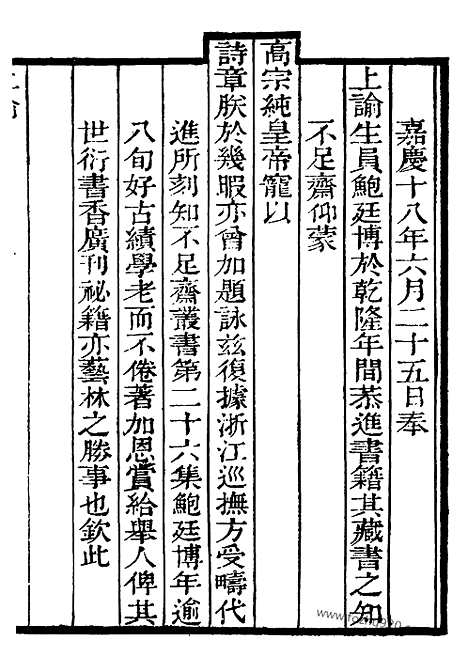 嘉慶十八年六月二十五日奉
上諭生員鮑廷博於乾隆年間恭進書籍其藏書之知
不足齋仰蒙
高宗純皇帝寵以
詩章朕於幾暇亦曾加題詠茲復據浙江巡撫方受疇代
進所刻知不足齋叢書第二十六集鮑廷博年逾
八旬好古績學老而不倦著加恩賞給舉人俾其
世衍書香廣刊秘籍亦藝林之勝事也欽此
上諭